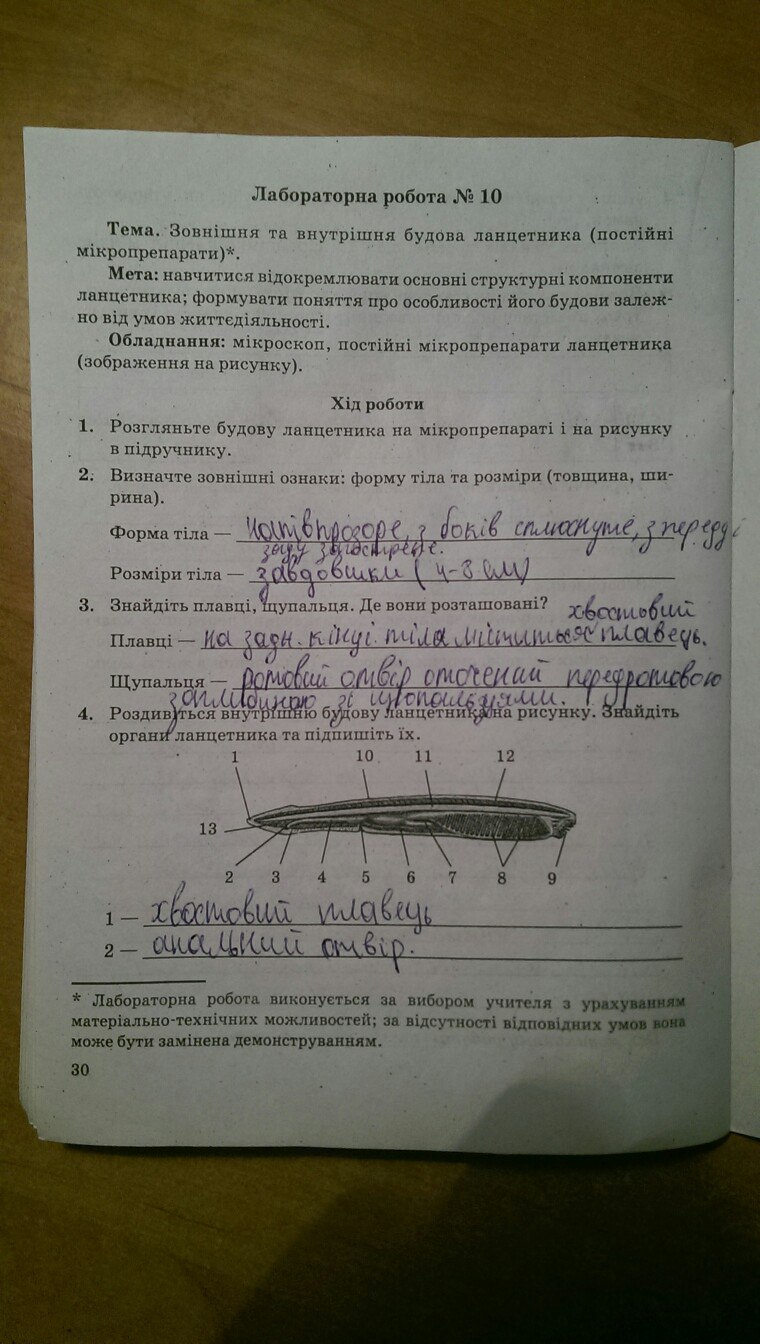 Лабораторна робота № 10
Тема. Зовнішня та внутрішня будова ланцетника (постійні
мікропрепарати)*.
Мета: навчитися відокремлювати основні структурні компоненти
ланцетника; формувати поняття про особливості його будови залеж-
но від умов життєдіяльності.
Обладнання: мікроскоп, постійні мікропрепарати ланцетника
(зображення на рисунку).
Хід роботи
1. Розгляньте будову ланцетника на мікропрепараті і на рисунку
в підручнику.
2. Визначте зовнішні ознаки: форму тіла та розміри (товщина, ши-
рина).
Форма тіла — напівпрозоре, з боків сплюснуте, з переду і
заду загострене.
Розміри тіла — завдовшки (4-8 см)
3. Знайдіть плавці, щупальця. Де вони розташовані?
хвостовий
Плавці — на задн. кінці тіла міститься плавець.
Щупальця — ротовий отвір оточений передротовою
западиною зі щупальцями.
4. Роздивіться внутрішню будову ланцетника на рисунку. Знайдіть
органи ланцетника та підпишіть їх.
1 10 11 12
13
2 3 4 5 6 7 8 9
1 — хвостовий плавець
2 — анальний отвір.
* Лабораторна робота виконується за вибором учителя з урахуванням
матеріально-технічних можливостей; за відсутності відповідних умов вона
може бути замінена демонструванням.
30